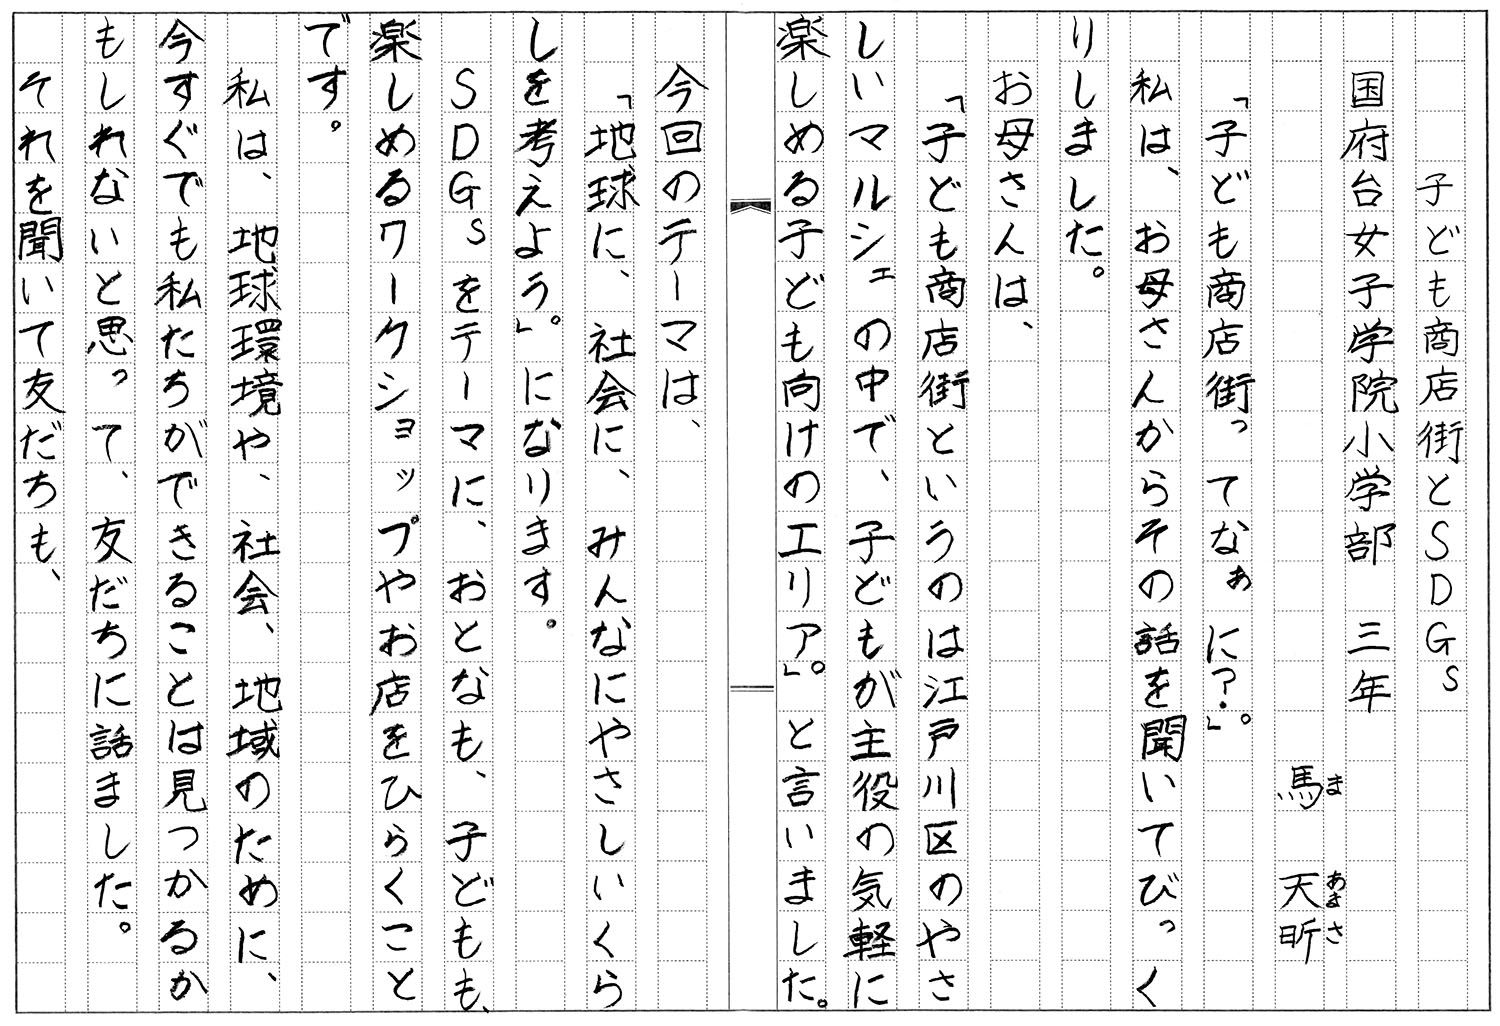 子ども商店街とSDGs
国府台女子学院小学部　三年
馬　天昕
ま　あまさ
「子ども商店街ってなぁに？」。
私は、お母さんからその話を聞いてびっく
りしました。
お母さんは、
「子ども商店街というのは江戸川区のやさ
しいマルシェの中で、子どもが主役の気軽に
楽しめる子ども向けのエリア」。と言いました。
今回のテーマは、
「地球に、社会に、みんなにやさしいくら
しを考えよう」。になります。
SDGsをテーマに、おとなも、子どもも、
楽しめるワークショップやお店をひらくこと
です。
私は、地球環境や、社会、地域のために、
今すぐでも私たちができることは見つかるか
もしれないと思って、友だちに話ました。
それを聞いて友だちも、